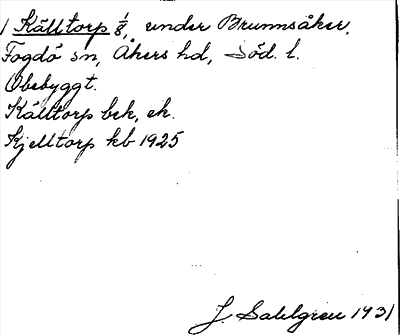 1 Källtorp 1/8, under Brunnsåker,
Fogdö sn, Åkers hd, Söd. l.
Obebyggt.
Källtorp bek, ek.
Kjelltorp kb 1925
J. Sahlgren 1931